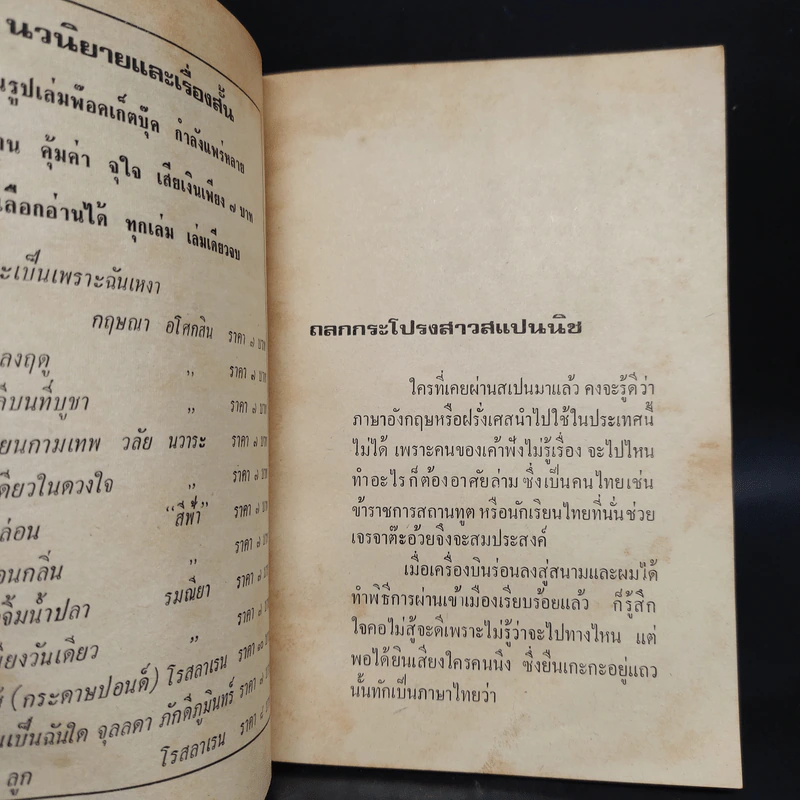 นวนิยายและเรื่องสั้น
นรูปเล่มพ๊อคเก็ตบุ๊ค กำลังแพร่หลาย
าน คุ้มค่า จุใจ เสียเงินเพียง ๗ บาท
เลือกอ่านได้ ทุกเล่ม เล่มเดียวจบ
ะเป็นเพราะฉันเหงา
กฤษณา อโศกสิน ราคา ๗ บาท
ลงฤดู ,, ราคา ๗ บาท
บนที่บูชา ,, ราคา ๗ บาท
ยนกามเทพ วลัย นวาระ ราคา ๗ บาท
ดียวในดวงใจ ,, ราคา ๗ บาท
ล่อน “สีฟ้า” ราคา ๗ บาท
อนกลิ่น ,, ราคา ๗ บาท
จิ้มน้ำปลา รมณียา ราคา ๗ บาท
พียงวันเดียว ,, ราคา ๗
(กระดาษปอนด์) โรสลาเรน ราคา ๑๐ บาท
เป็นฉันใด จุลลดา ภักดีภูมินทร์ ราคา ๗
ลูก โรสลาเรน ราคา ๘
ถลกกระโปรงสาวสแปนนิช
ใครที่เคยผ่านสเปนมาแล้ว คงจะรู้ดีว่า
ภาษาอังกฤษหรือฝรั่งเศสนำไปใช้ในประเทศนี้
ไม่ได้ เพราะคนของเค้าฟังไม่รู้เรื่อง จะไปไหน
ทำอะไร ก็ต้องอาศัยล่าม ซึ่งเป็นคนไทยเช่น
ข้าราชการสถานทูต หรือนักเรียนไทยที่นั่นช่วย
เจรจาต๊ะอ้วยจึงจะสมประสงค์
เมื่อเครื่องบินร่อนลงสู่สนามและผมได้
ทำพิธีการผ่านเข้าเมืองเรียบร้อยแล้ว ก็รู้สึก
ใจคอไม่สู้จะดีเพราะไม่รู้ว่าจะไปทางไหน แต่
พอได้ยินเสียงใครคนนึง ซึ่งยืนเกะกะอยู่แถว
นั้นทักเป็นภาษาไทยว่า